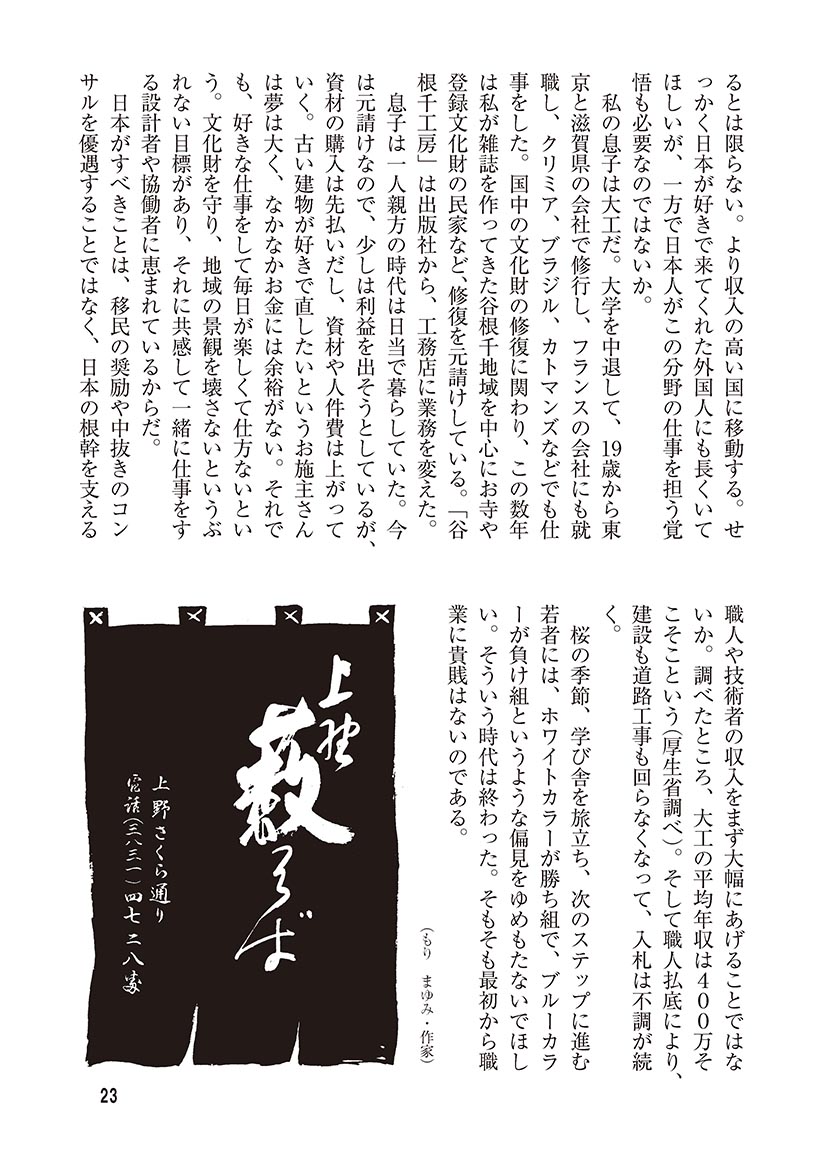 るとは限らない。より収入の高い国に移動する。せ
っかく日本が好きで来てくれた外国人にも長くいて
ほしいが、一方で日本人がこの分野の仕事を担う覚
悟も必要なのではないか。
私の息子は大工だ。大学を中退して、19歳から東
京と滋賀県の会社で修行し、フランスの会社にも就
職し、クリミア、ブラジル、カトマンズなどでも仕
事をした。国中の文化財の修復に関わり、この数年
は私が雑誌を作ってきた谷根千地域を中心にお寺や
登録文化財の民家など、修復を元請けしている。「谷
根千工房」は出版社から、工務店に業務を変えた。
息子は一人親方の時代は日当で暮らしていた。今
は元請けなので、少しは利益を出そうとしているが、
資材の購入は先払いだし、資材や人件費は上がって
いく。古い建物が好きで直したいというお施主さん
は夢は大く、なかなかお金には余裕がない。それで
も、好きな仕事をして毎日が楽しくて仕方ないとい
う。文化財を守り、地域の景観を壊さないというぶ
れない目標があり、それに共感して一緒に仕事をす
る設計者や協働者に恵まれているからだ。
日本がすべきことは、移民の奨励や中抜きのコン
サルを優遇することではなく、日本の根幹を支える
職人や技術者の収入をまず大幅にあげることではな
いか。調べたところ、大工の平均年収は４００万そ
こそこという(厚生省調べ)。そして職人払底により、
建設も道路工事も回らなくなって、入札は不調が続
く。
桜の季節、学び舎を旅立ち、次のステップに進む
若者には、ホワイトカラーが勝ち組で、ブルーカラ
ーが負け組というような偏見をゆめもたないでほし
い。そういう時代は終わった。そもそも最初から職
業に貴賤はないのである。
(もり まゆみ・作家)
上野
藪そば
上野さくら通り
電話(三八三一)四七二八番
23